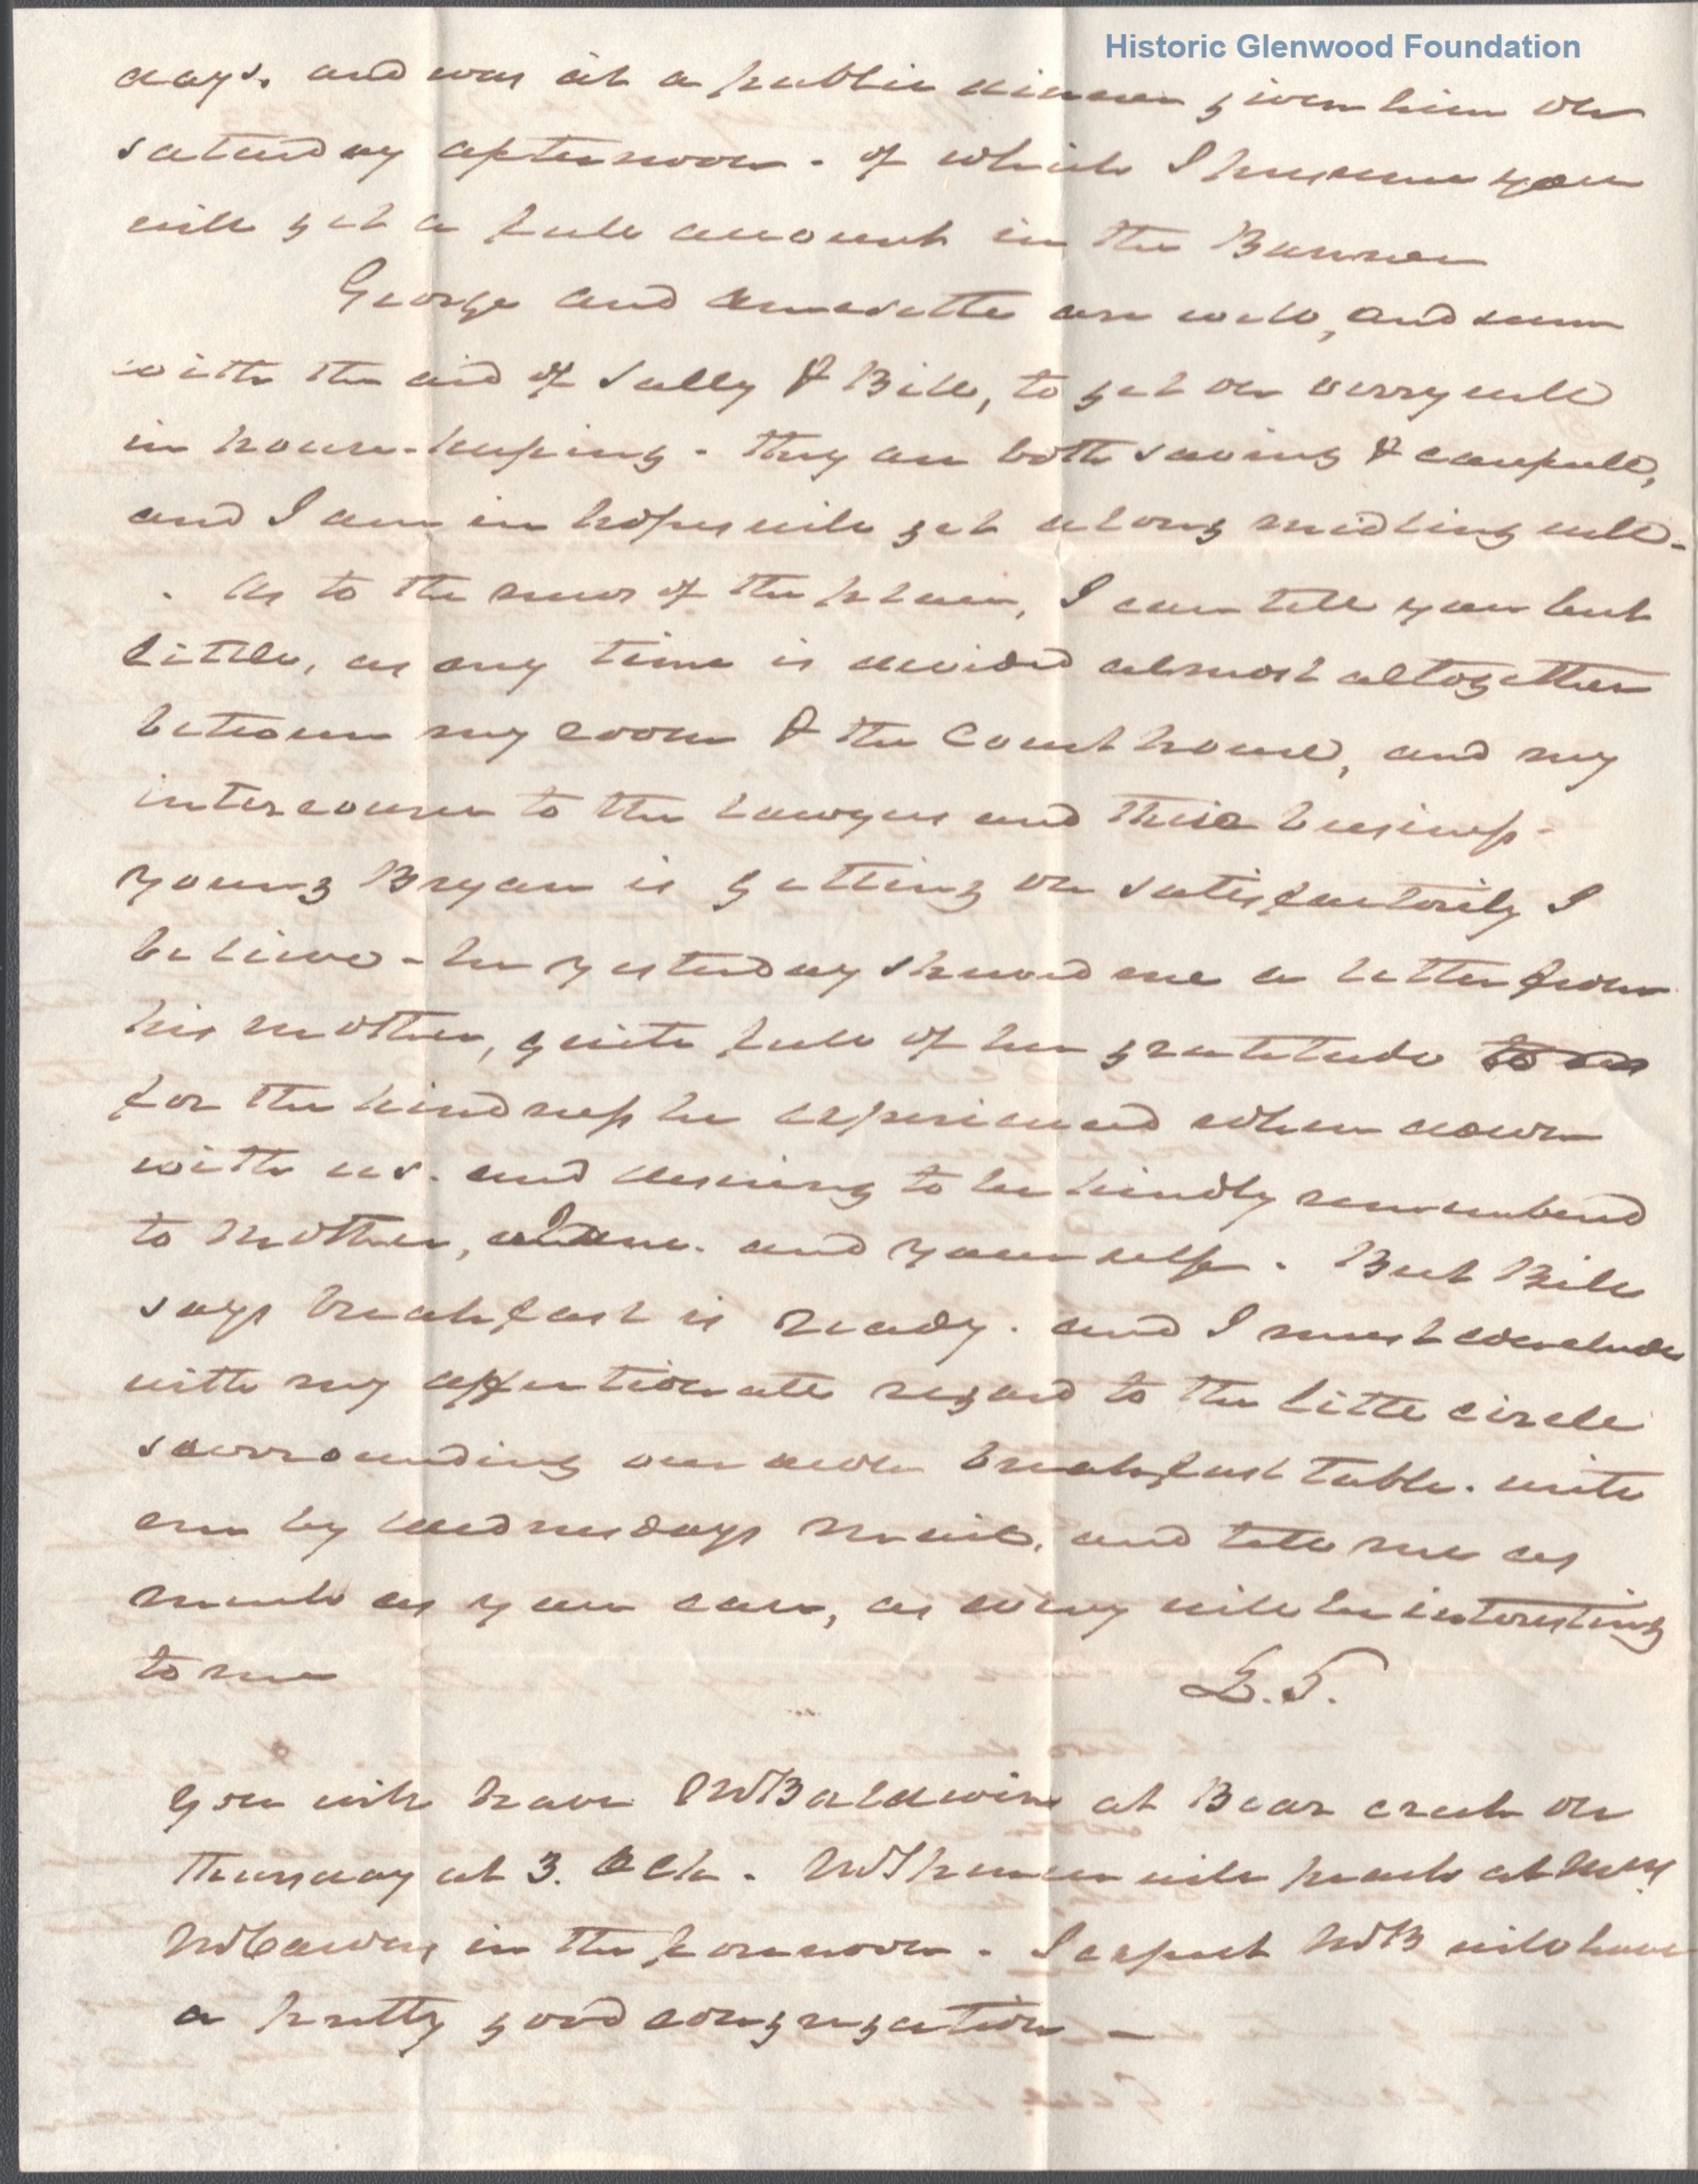 Historic Glenwood Foundation
days. and was at a public dinner given him on
saturday afternoon - of which I presume you
will get a full account in the Banner
George and are well, and seem
with the aid of Sally & Bill, to get on verry well
in house-keeping - they are both saving & carefull,
and I am in hopes will get along midling well -
. As to the news of the place, I can tell you but
little, as my time is divided almost altogether
between my room & the Court house, and my
intercourse to the Lawyers and their business -
young Bryan is getting on satisfactorily I
believe - he yesterday shewed me a letter from
his mother, quite full of her gratitude
for the kindness he experienced when down
with us. and desiring to be kindly remembered
to Mother, Jane. and yourself. But Bill
says breakfast is ready. and I must conclude
with my affectionate regard to the little circle
surrounding our own breakfast table. write
me by wednesdays mail, and tell me as
much as you can, as every will be interesting
to me
You will have Mr Baldwin at Bear creek on
Thursday at 3. Oclk. Mr will preach at
in the forenoon - I expect Mr B will have
a pretty good congregation -